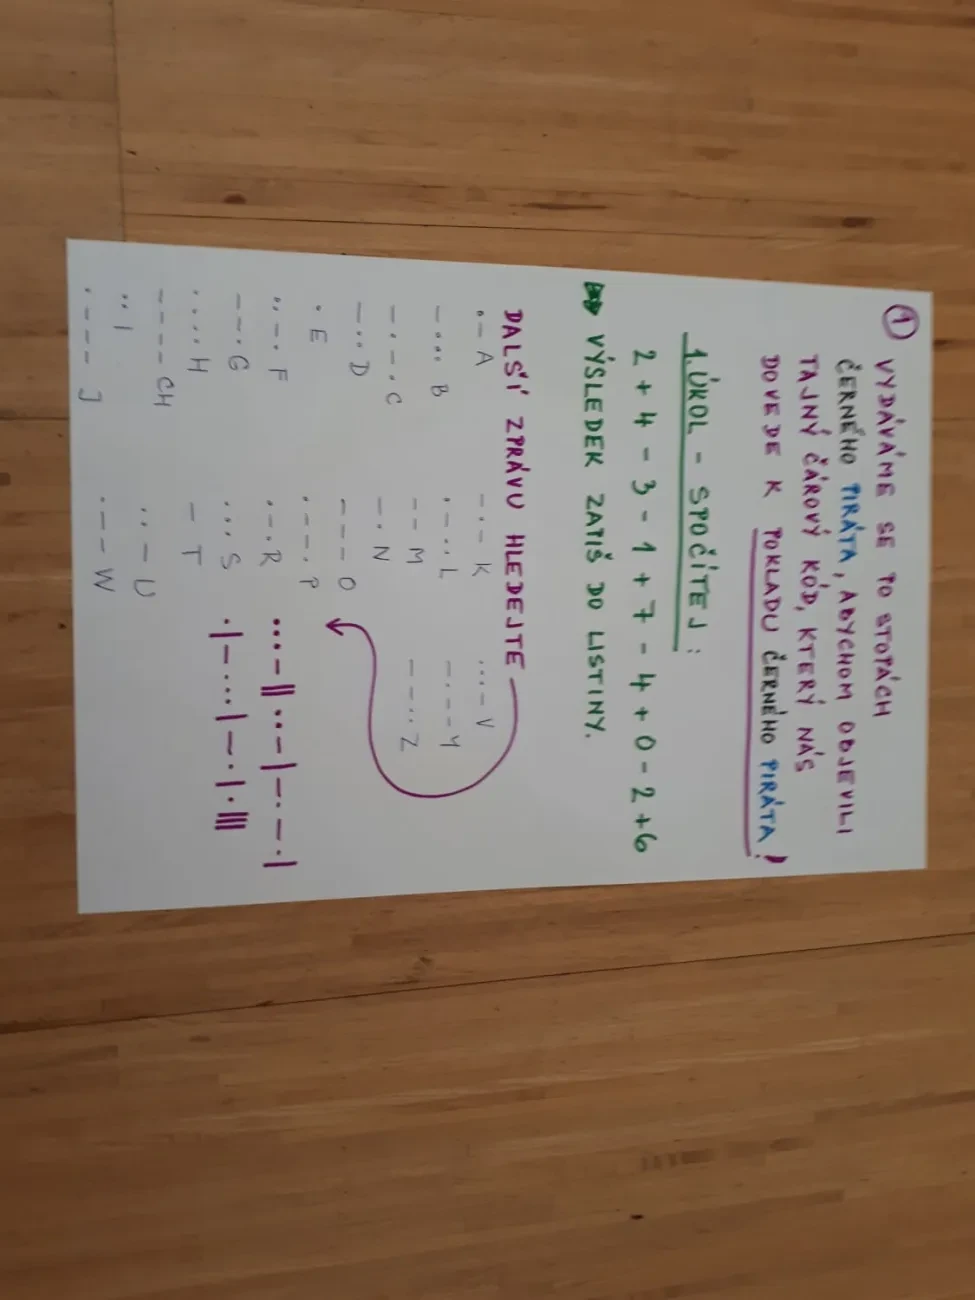 1 VYDÁVÁME SE PO STOPÁCH
ČERNÉHO PIRÁTA, ABYCHOM OBJEVILI
TAJNÝ ČÁROVÝ KÓD, KTERÝ NÁS
DOVEDE K POKLADU ČERNÉHO PIRÁTA!
1. ÚKOL - SPOČÍTEJ:
2 + 4 - 3 - 1 + 7 - 4 + 0 - 2 + 6
VÝSLEDEK ZAPIŠ DO LISTINY.
DALŠÍ ZPRÁVU HLEDEJTE
.- A
-... B
-.-. C
-.. D
. E
..-. F
--. G
.... H
---- CH
.. I
.--- J
-.- K
.-.. L
-- M
-. N
--- O
.--. P
.-. R
... S
- T
..- U
.-- W
...- V
-.-- Y
--.. Z
...-||..-|-.-.|
.|-...|-.|.|||